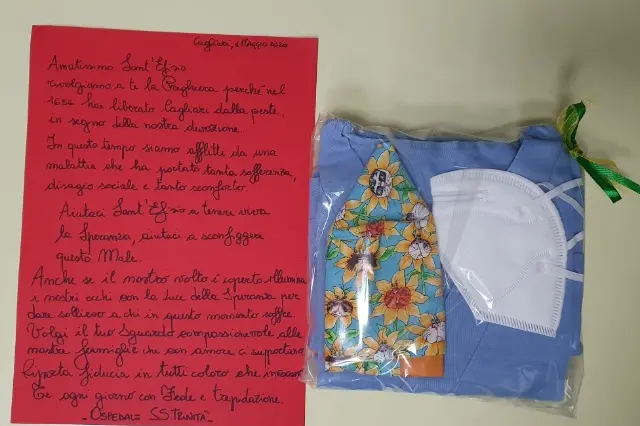 Cagliari, 1 Maggio 2020
Amatissimo Sant'Efisio
rivolgiamo a te la Preghiera perché nel
1656 hai liberato Cagliari dalla peste,
in segno della nostra devozione.
In questo tempo siamo afflitte da una
malattia che ha portato tanta sofferenza,
disagio sociale e tanto sconforto
Aiutaci Sant'Efisio a tenere viva
la Speranza, aiutaci a sconfiggere
questo Male.
Anche se il nostro volto è coperto illumina
i nostri occhi con la Luce della Speranza per
dare sollievo a chi in questo momento soffre.
Volgi il tuo Sguardo compassionevole alle
nostre famiglie che con amore ci supportano
Riporta fiducia in tutti coloro che invocano
Te ogni giorno con Fede e trepidazione.
- OSPEDALE SS TRINITA' -